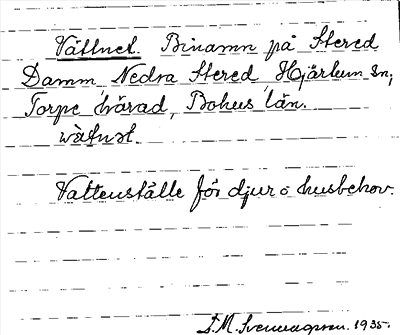 Vättnet. Binamn på Stered
Damm Nedra Stered Hjärtum sn,
Torpe härad, Bohus län.
Vattenställe för djur o husbehov.
S.M. Svennungsson. 1935.